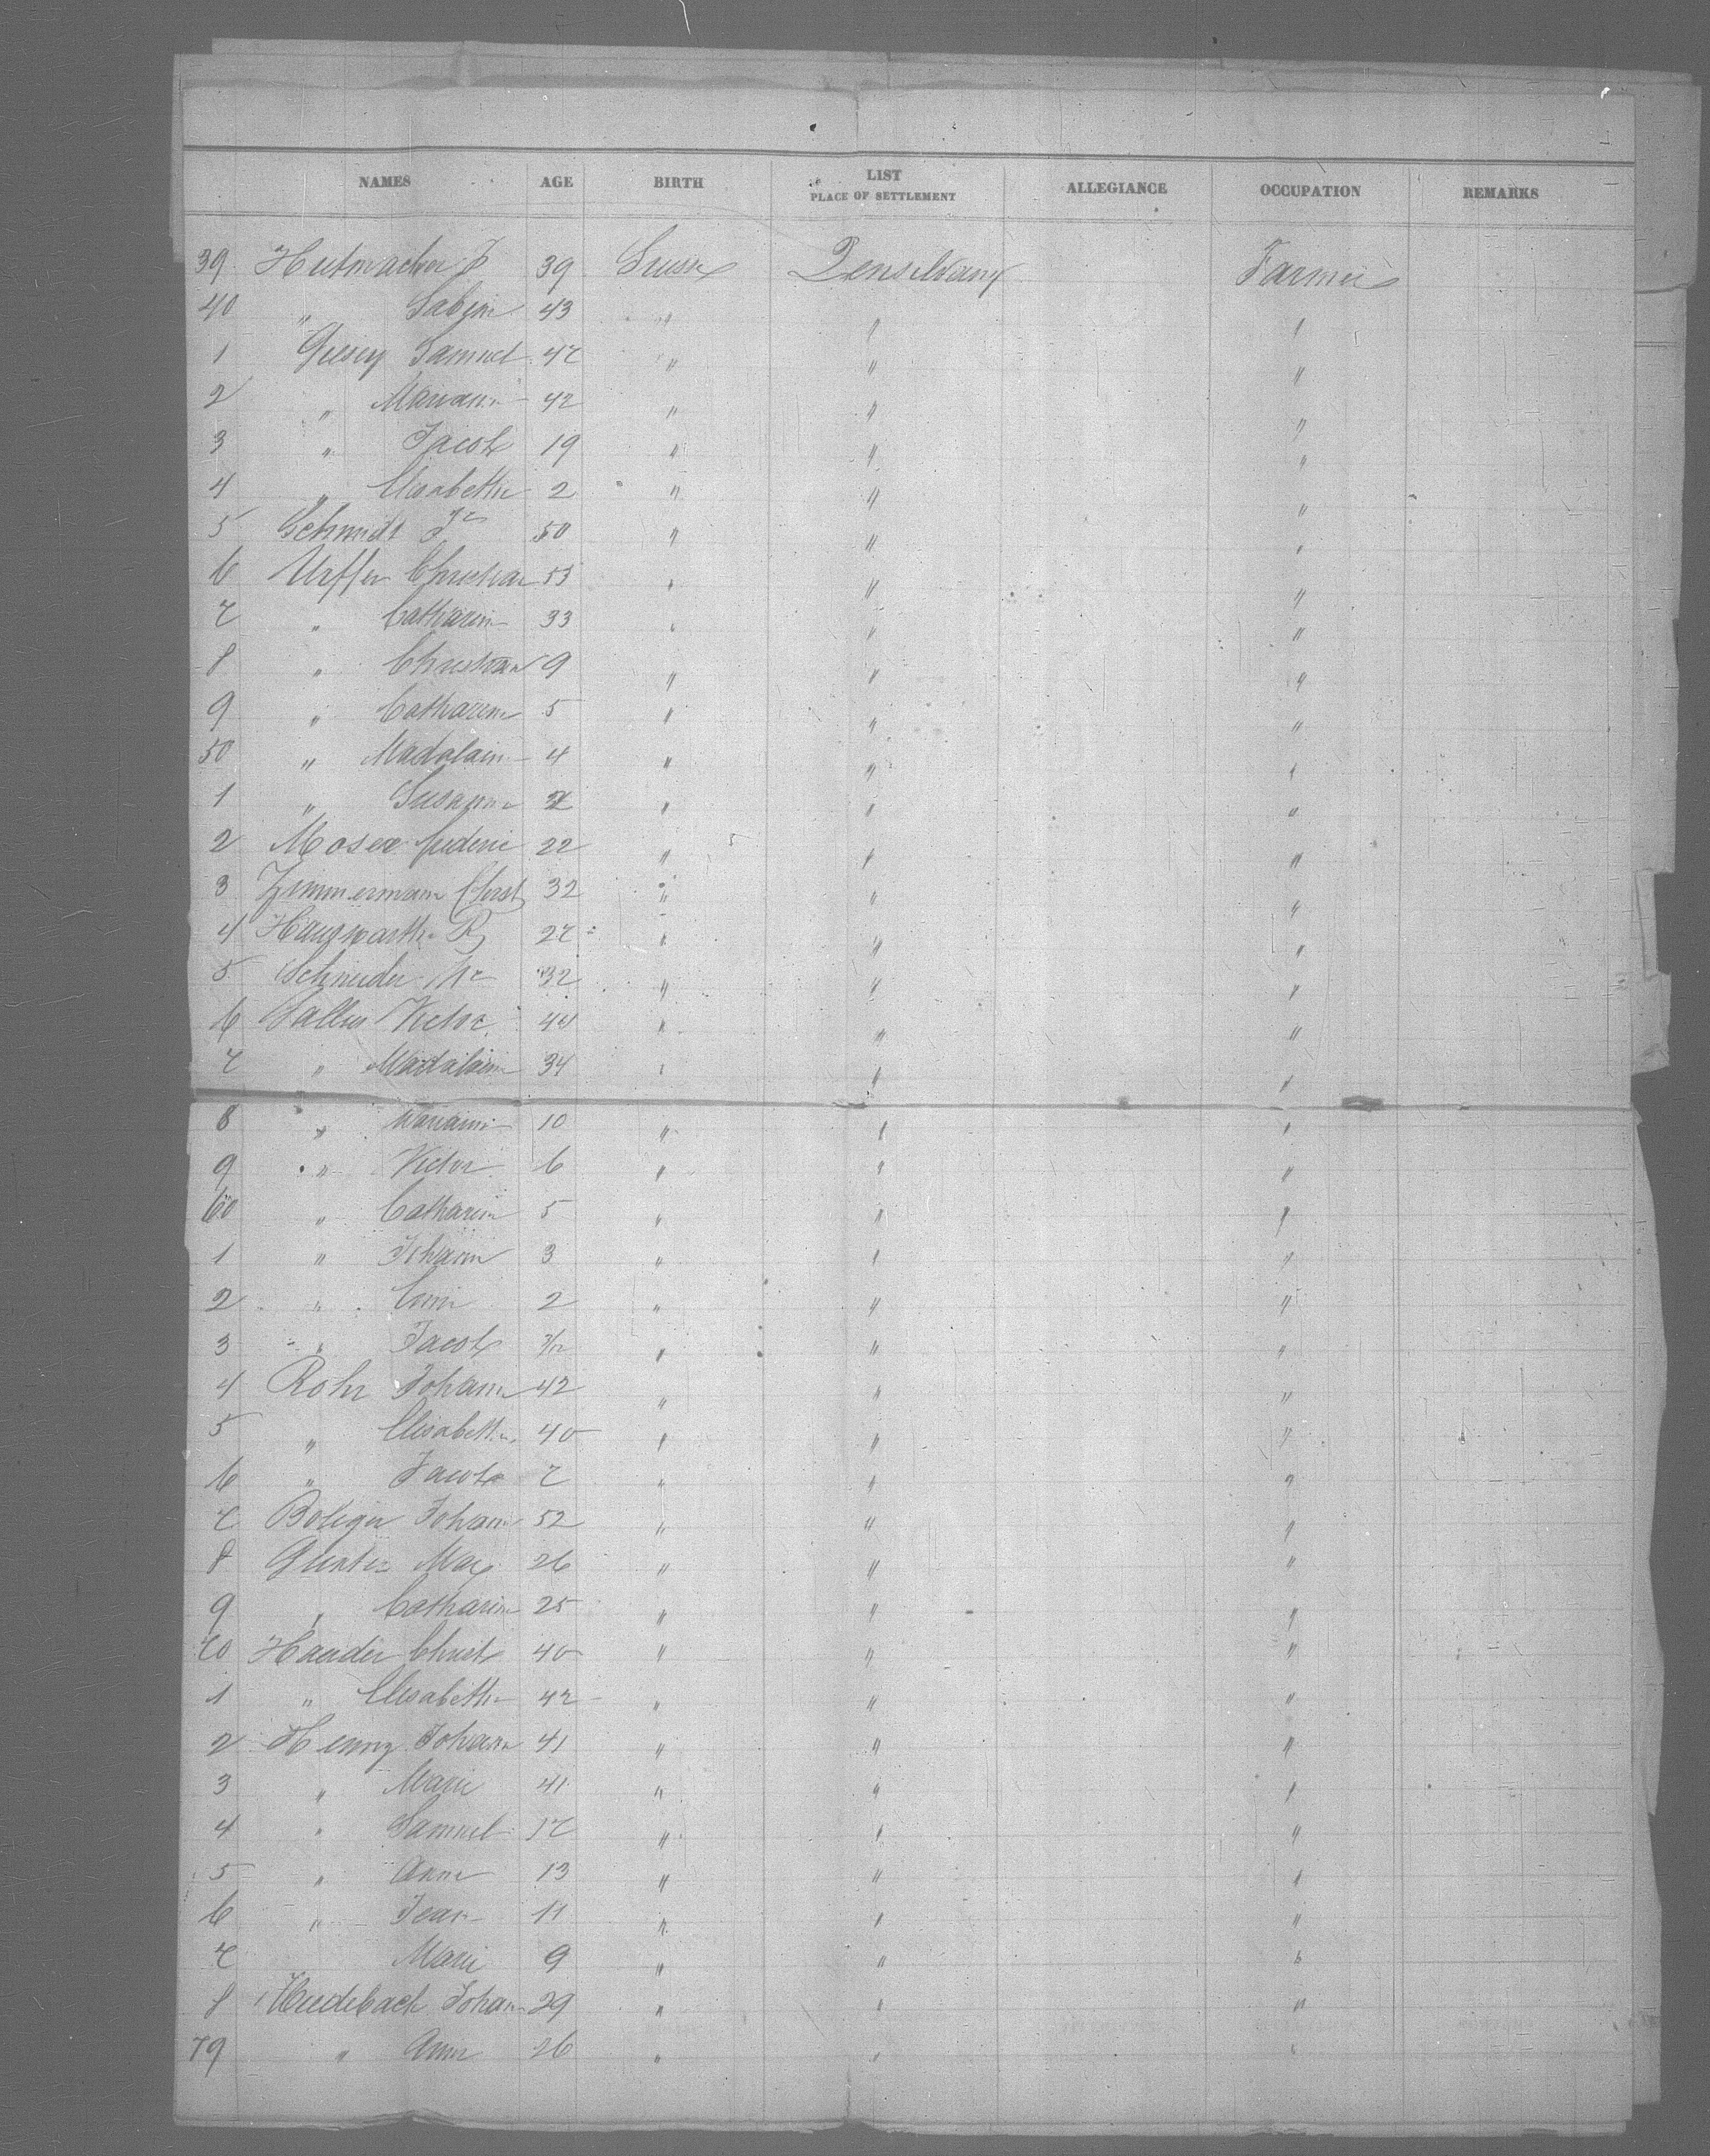 NAMES AGE BIRTH LIST PLACE OF SETTLEMENT ALLEGIANCE OCCUPATION REMARKS
39 Hutmacher J 39 Suisse Penselvany Farmer
40 " Sabin 43 " " "
1 Samuel 47 " " "
2 " Mariann 42 " " "
3 " Jacob 19 " " "
4 " Elisabethe 2 " " "
5 Schmidt Jc 50 " " "
6 Urffer Christian 53 " " "
7 " Catharin 33 " " "
8 " Christian 9 " " "
9 " Catharin 5 " " "
50 " Madalain 4 " " "
1 " Susanna " " "
2 Moser frederic 22 " " "
3 Zimmermann Christ 32 " " "
4 R 27 " " "
5 Schneider Nc 32 " " "
6 Victor 40 " " "
7 " Madalain 34 " " "
8 " Mariann 10 " " "
9 " Victor 6 " " "
60 " Catharin 5 " " "
1 " Johann 3 " " "
2 " 2 " " "
3 " Jacob " " "
4 Rohr Johann 42 " " "
5 " Elisabeth 40 " " "
6 " Jacob 7 " " "
7 Boliger Johann 52 " " "
8 Gunter Max 26 " " "
9 " Catharin 25 " " "
70 Hauder Christ 40 " " "
1 " Elisabeth 42 " " "
2 Henny Johann 41 " " "
3 " Marie 41 " " "
4 " Samuel 17 " " "
5 " Anna 13 " " "
6 " Jean 11 " " "
7 Marie 9 " " "
8 Johan 29 " " "
79 " Anna 26 " " "